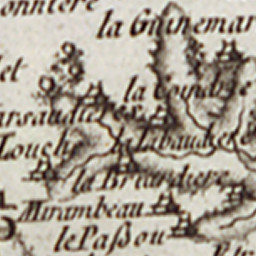 onniere
la Guinemar
let
la Coudrie
arsaudieres
Touche
la Libaudiere
la Briardiere
Mirambeau
le Paſsou